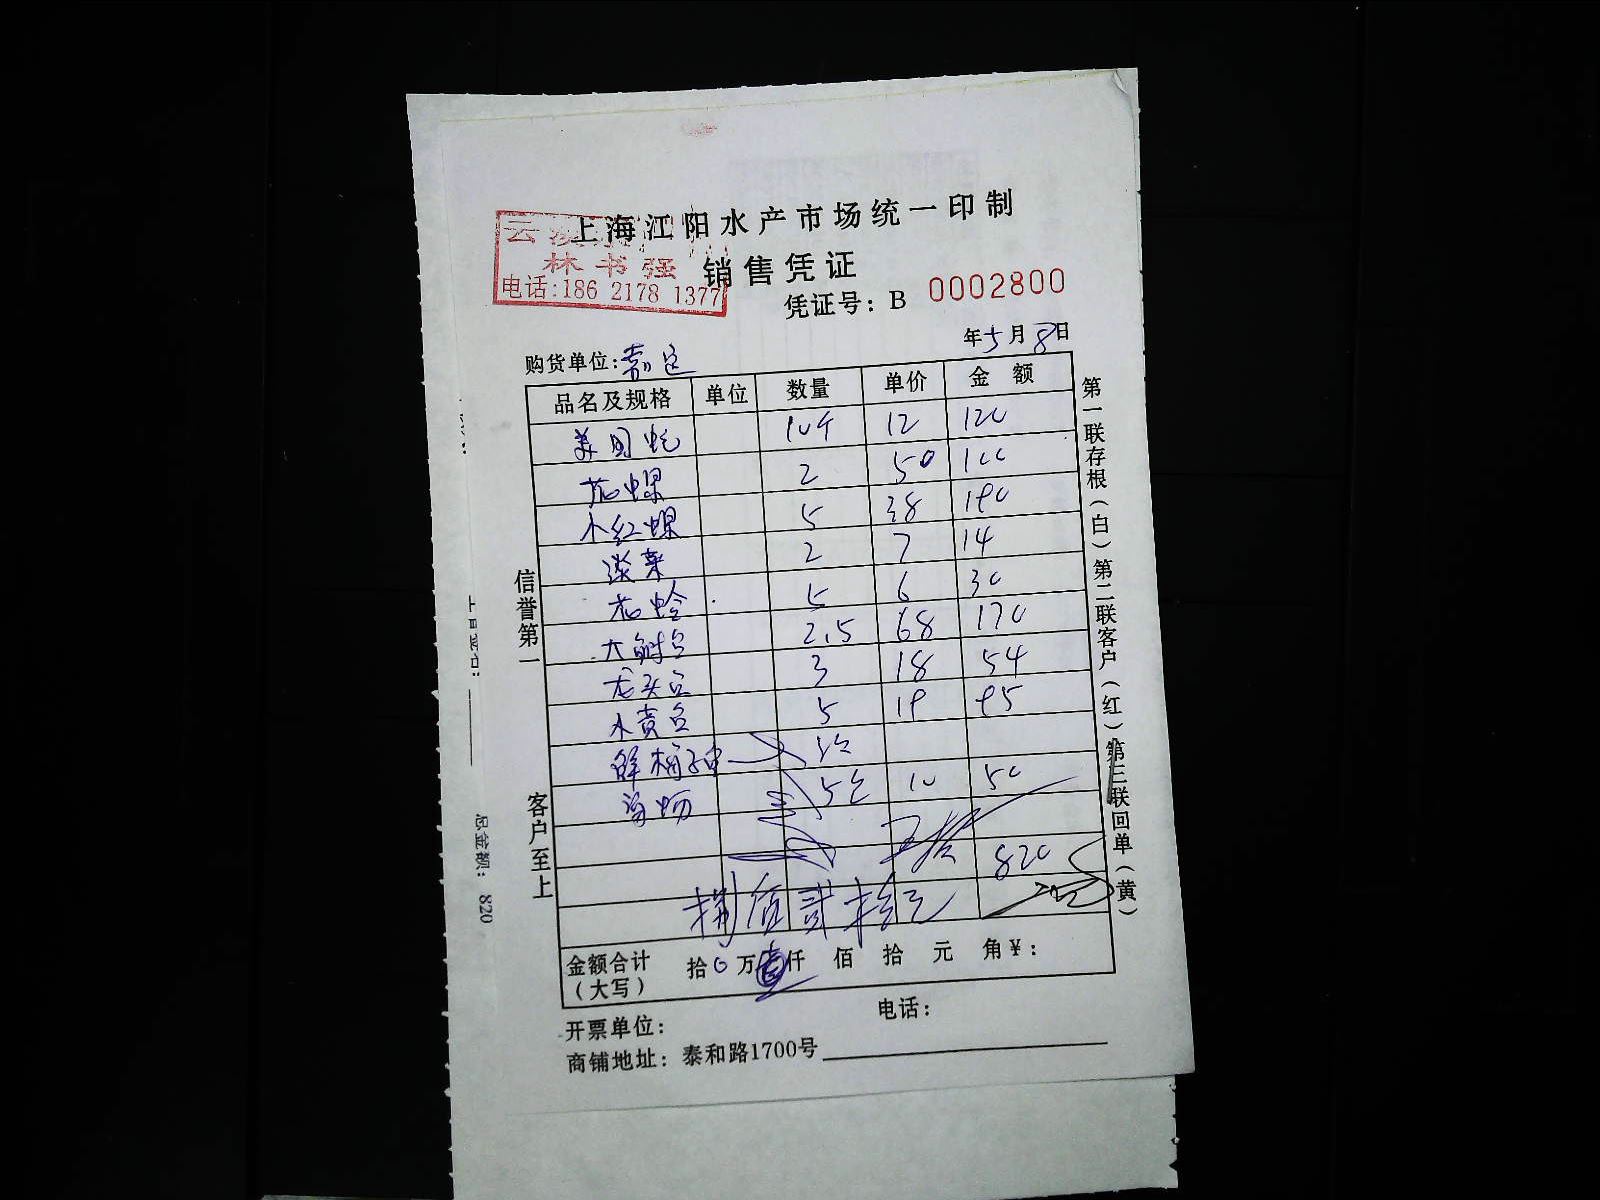 上海江阳水产市场统一印制
林书强
电话:186 2178 1377
销售凭证
凭证号: B 0002800
年5月8日
购货单位:嘉定
品名及规格 单位 数量 单价 金额
美国蚌 10斤 12 120
花螺 2 50 100
小红螺 5 38 190
淡菜 2 7 14
花蛤 5 6 30
大鲥鱼 2.5 68 170
龙头鱼 3 18 54
小黄鱼 5 19 95
5 10 50
820
捌佰贰拾元
金额合计（大写） 拾0万 仟 佰 拾 元 角¥:
开票单位: 电话:
商铺地址: 泰和路1700号
信誉第一 客户至上
第一联存根(白)第二联客户(红)第三联回单(黄)
总金额: 820